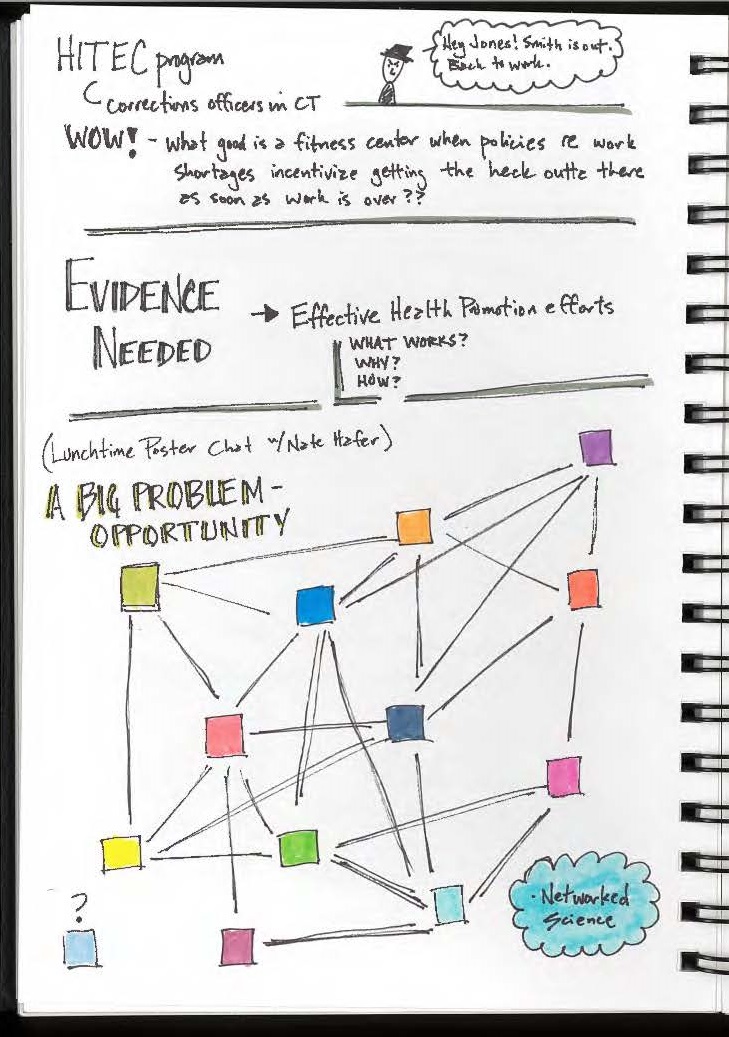 HITEC program
Hey Jones! Smith is out.
Back to work.
corrections officers in CT
WOW! - What good is a fitness center when policies re work
shortages incentivize getting the heck outta there
as soon as work is over??
EVIDENCE
NEEDED
→ Effective Health Promotion efforts
WHAT WORKS?
WHY?
HOW?
(Lunchtime Poster Chat w/ Nate Hafer)
A BIG PROBLEM-
OPPORTUNITY
?
· Networked
Science